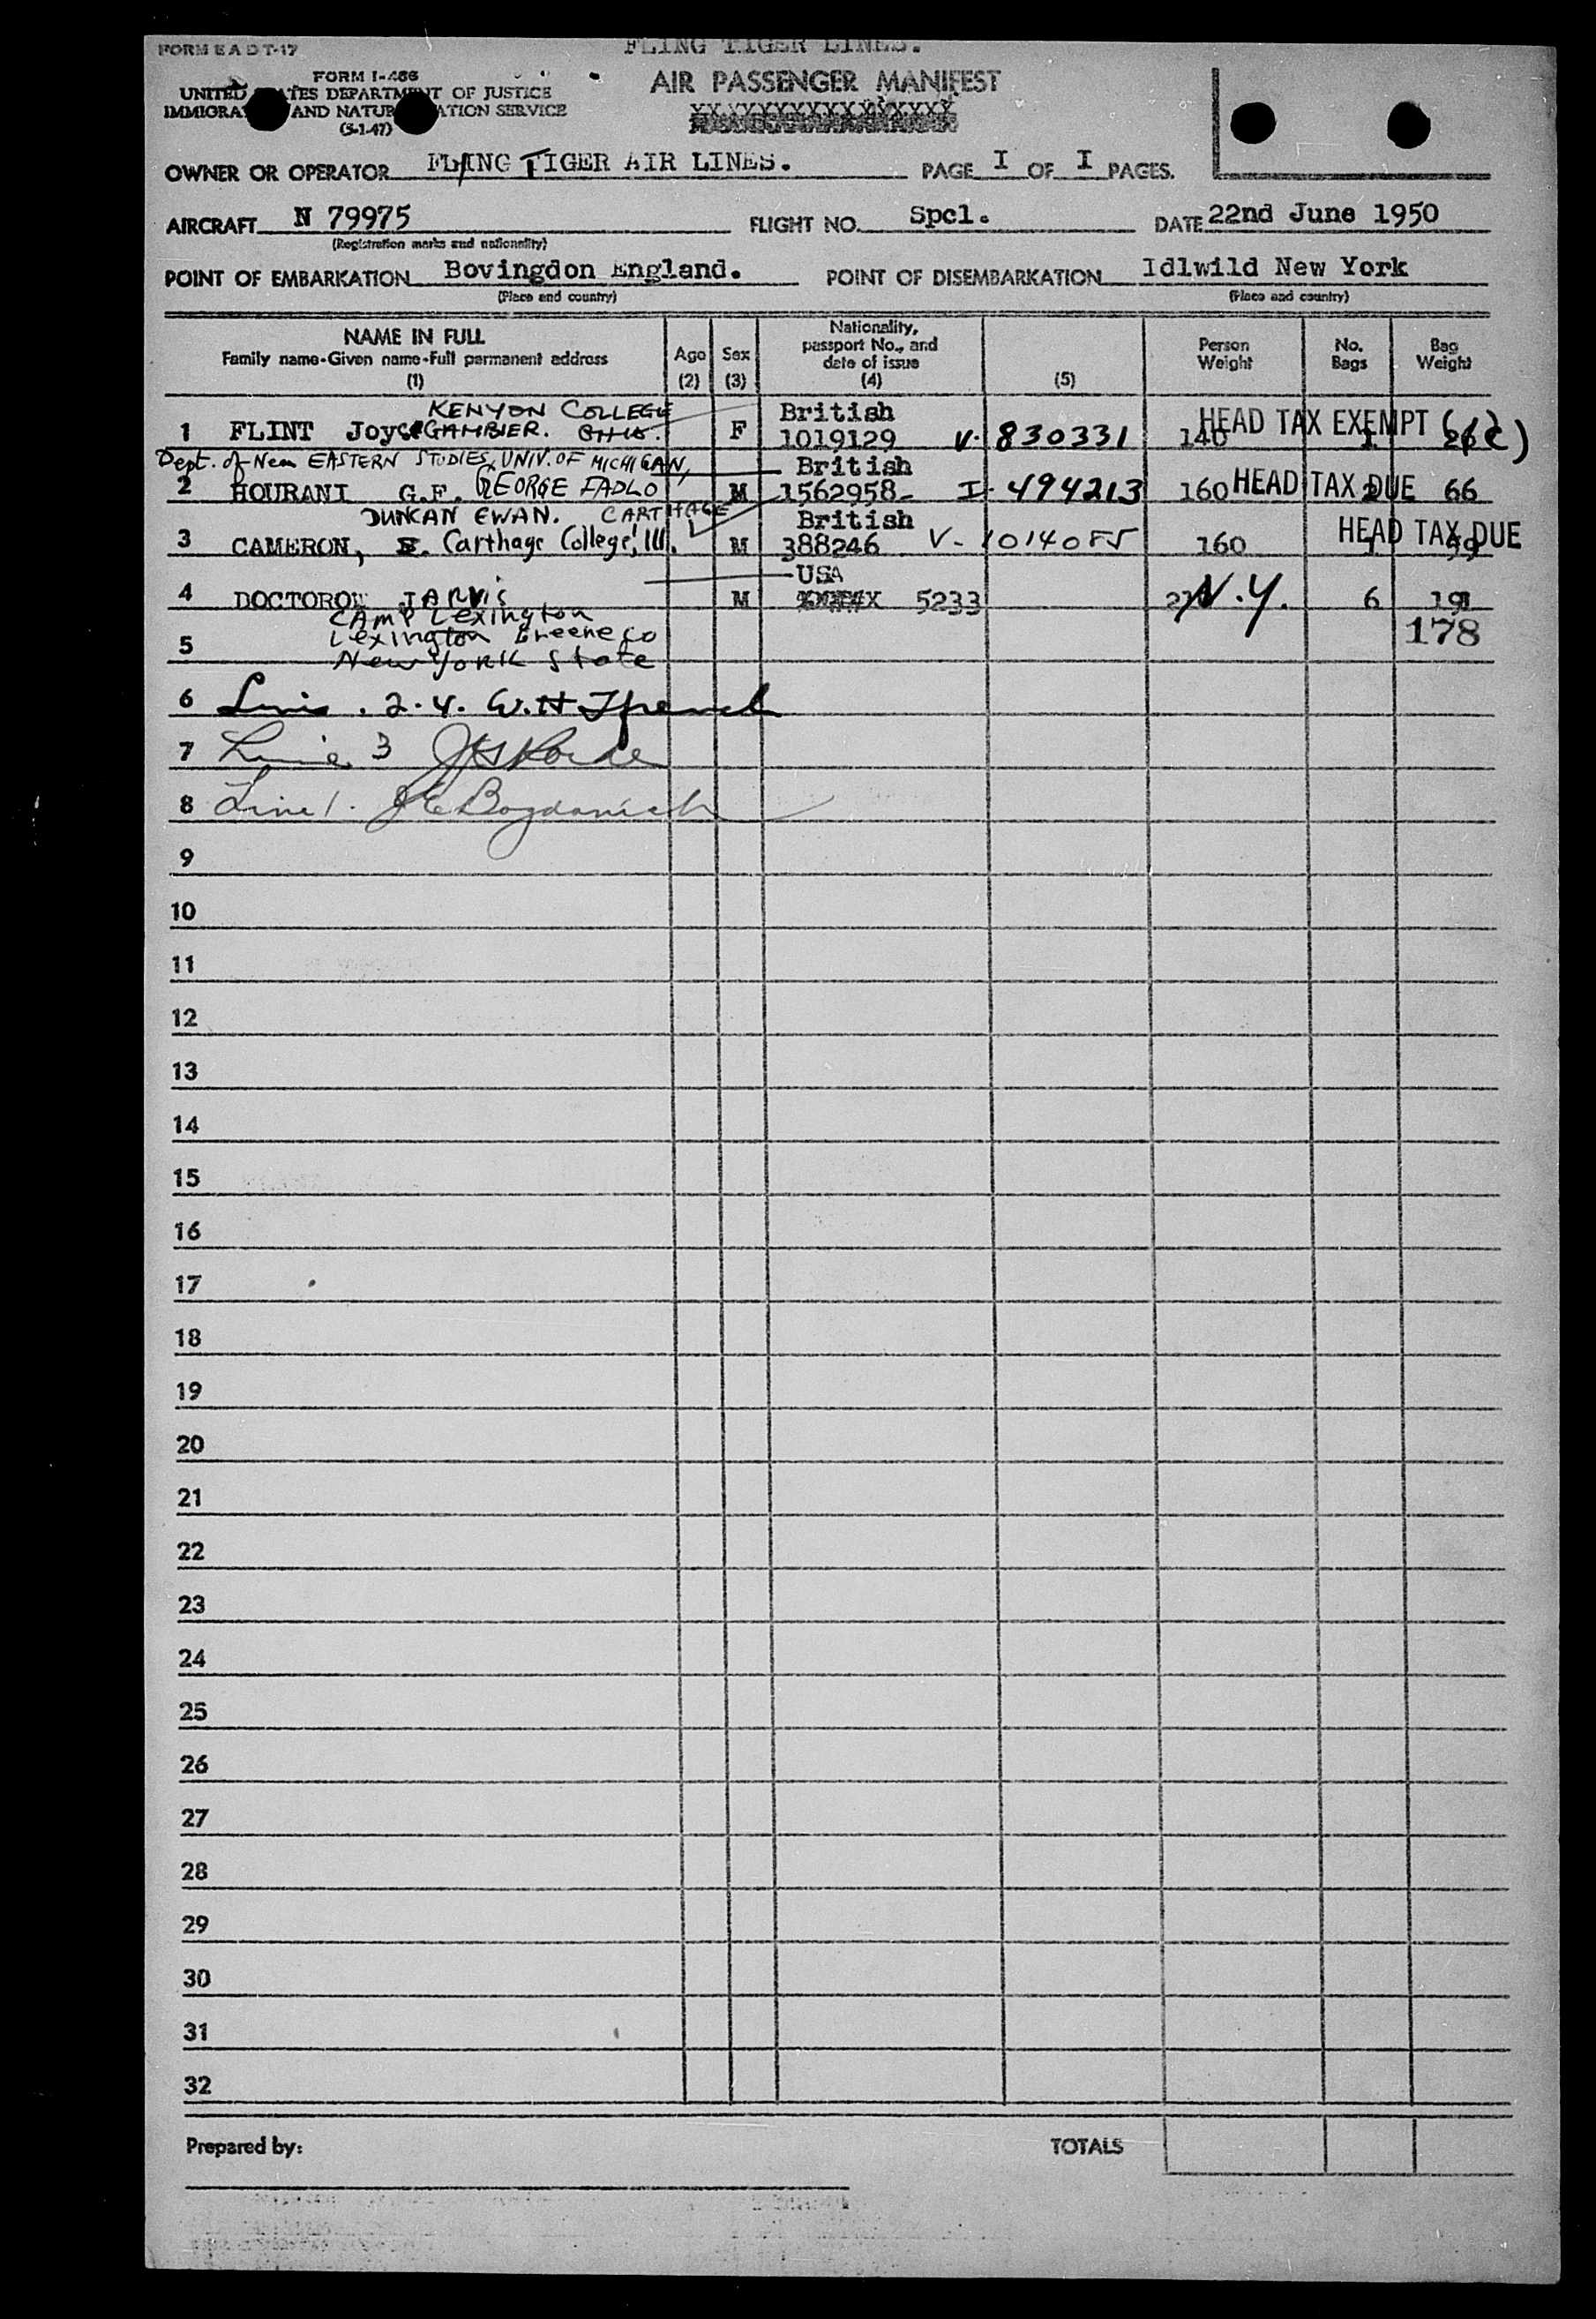 FORM E A D T-17
FLING TIGER LINES.
FORM I-466
UNITED STATES DEPARTMENT OF JUSTICE
IMMIGRA AND NATUR ATION SERVICE
(5-1-47)
AIR PASSENGER MANIFEST
OWNER OR OPERATOR FLYING TIGER AIR LINES. PAGE I OF I PAGES.
AIRCRAFT N 79975 FLIGHT NO. Spcl. DATE 22nd June 1950
(Registration marks and nationality)
POINT OF EMBARKATION Bovingdon England. POINT OF DISEMBARKATION Idlwild New York
(Place and country) (Place and country)
NAME IN FULL
Family name-Given name-Full permanent address
(1)
Age
(2)
Sex
(3)
Nationality,
passport No., and
date of issue
(4)
(5)
Person
Weight
No.
Bags
Bag
Weight
KENYON COLLEGE British HEAD TAX EXEMPT
1 FLINT Joyce GAMBIER. OHIO. F 1019129 V. 830331 140 1
Dept. of Near EASTERN STUDIES, UNIV. OF MICHIGAN, British
2 HOURANI G.F. GEORGE FADLO M 1562958 I- 494213 160 HEAD TAX DUE 66
DUNCAN EWAN. CARTHAGE British HEAD TAX DUE
3 CAMERON, E. Carthage College, Ill. M 388246 V- 1014085 160
USA
4 DOCTOROW JARVIS M 5233 N.Y. 6
CAMP Lexington
178
5 Lexington Greene co
New York State
6 Line . 2. 4. W.H French
7 Line 3
8 Line 1. J E Bogdanich
9
10
11
12
13
14
15
16
17
18
19
20
21
22
23
24
25
26
27
28
29
30
31
32
Prepared by: TOTALS